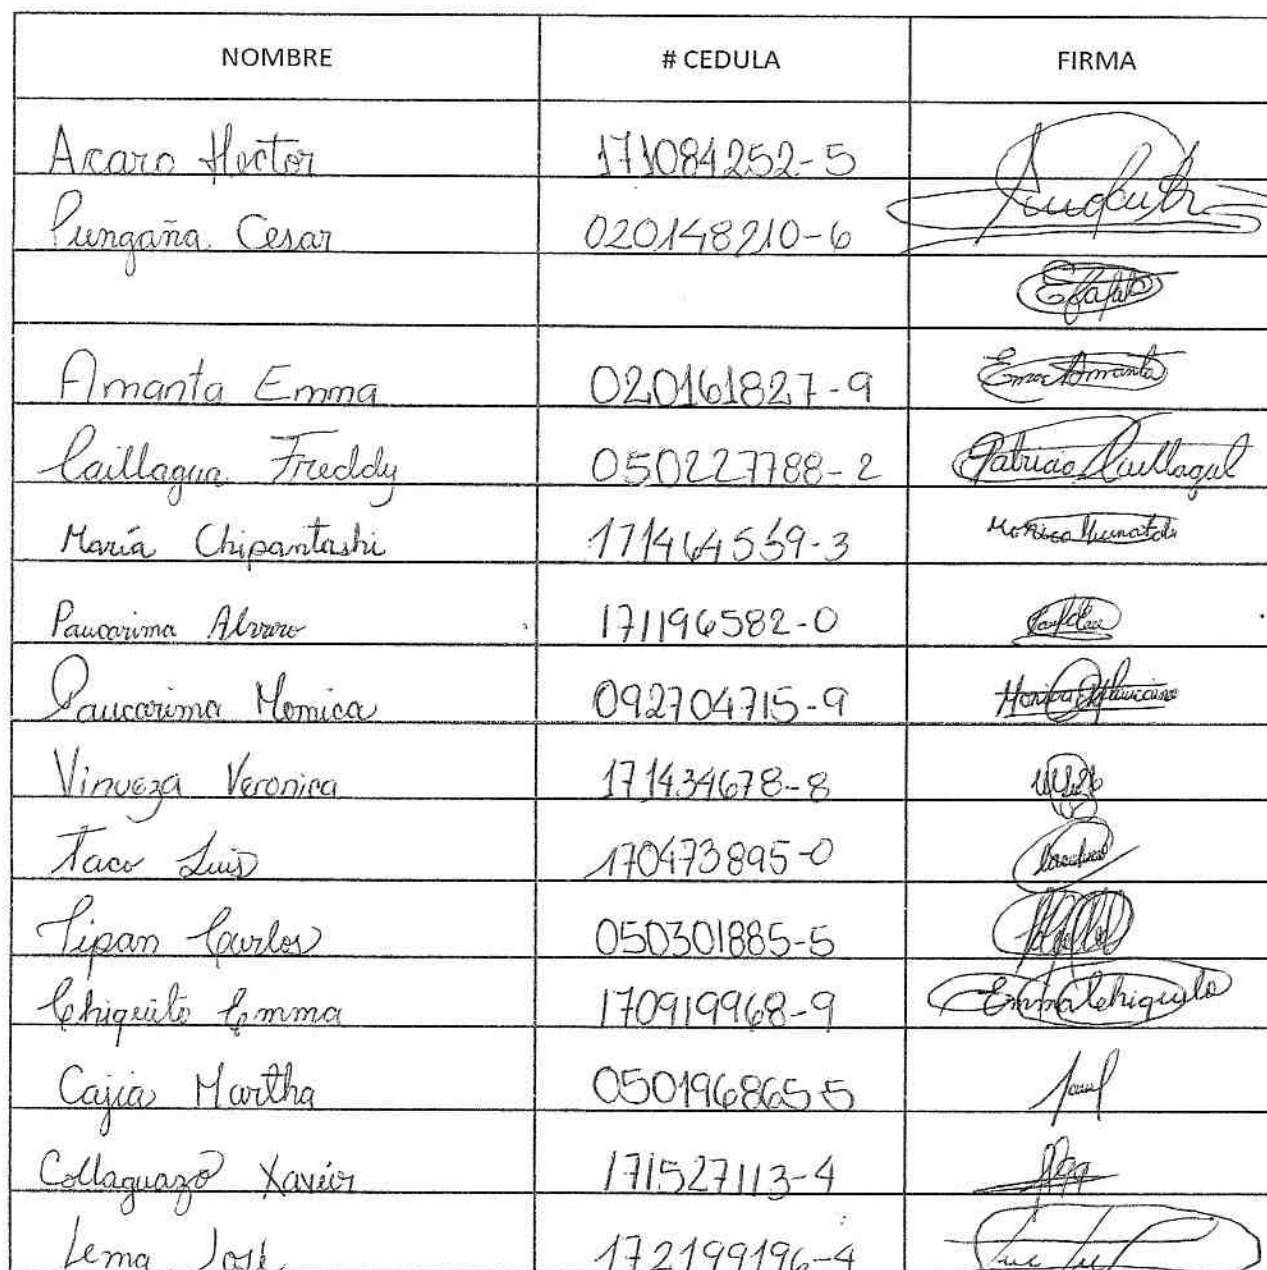 NOMBRE # CEDULA FIRMA
Acaro Hector 171084252-5
Pungaña Cesar 020148210-6
Amanta Emma 020161827-9 Emma Amanta
Caillagua Freddy 050227788-2 Patricio
María Chipantashi 171464559-3
Paucarima Alvaro 171196582-0
Paucarima Monica 092704715-9 Monica
Vinueza Veronica 171434678-8
Taco Luis 170473895-0
Tipan Carlos 050301885-5
Chiquito Emma 170919968-9 Emma Chiquito
Cajia Martha 050196865-5
Collaguazo Xavier 171527113-4
Lema José 172199196-4